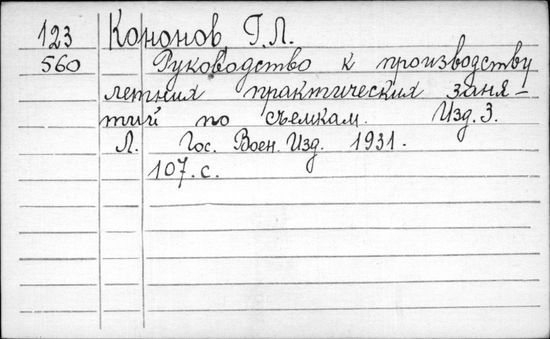 123 Кононов Г.Л.
560 Руководство к производству
летних практических заня-
тий по съемкам. Изд. 3.
Л. Гос. Воен. Изд. 1931.
107. с.